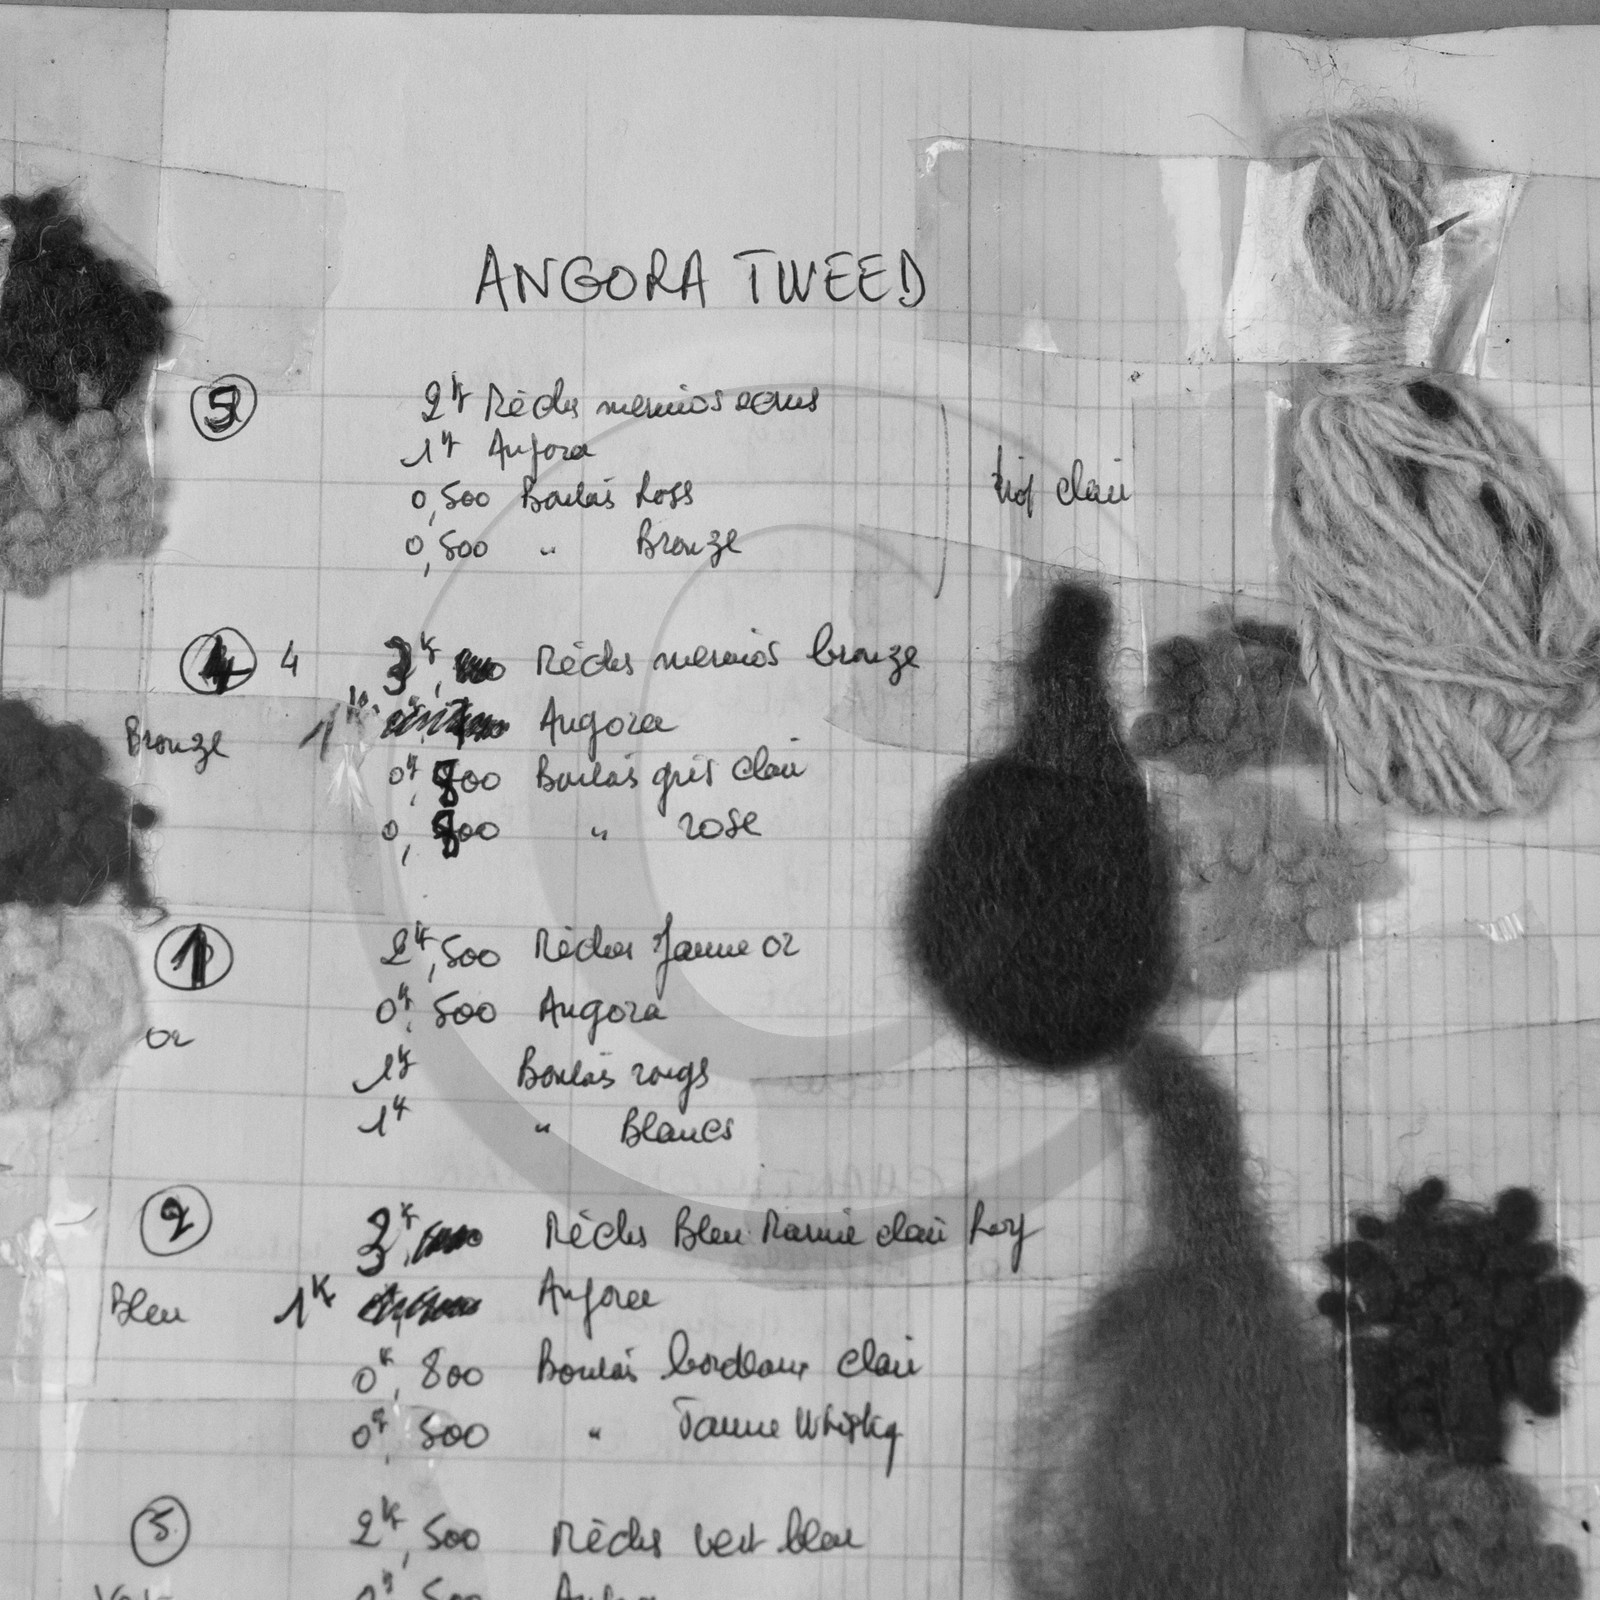 ANGORA TWEED
5 2K Mèches merinos ecrus
1K Angora
0,500 Boutons
trop clair
0,500 " Bronze
4 4 3K Mèches merinos bronze
Bronze 1K Angora
0K,800 Boutons gris clair
0,800 " rose
1 2K,500 Mèches Jaune or
or 0K,500 Angora
1K Boutons rouges
1K " Blancs
2 3K Mèches Bleu Marine clair
Bleu 1K Angora
0K,800 Boutons bordeaux clair
0K,500 " Jaune Whisky
5 2K,500 Mèches vert bleu
0K,500 Angora